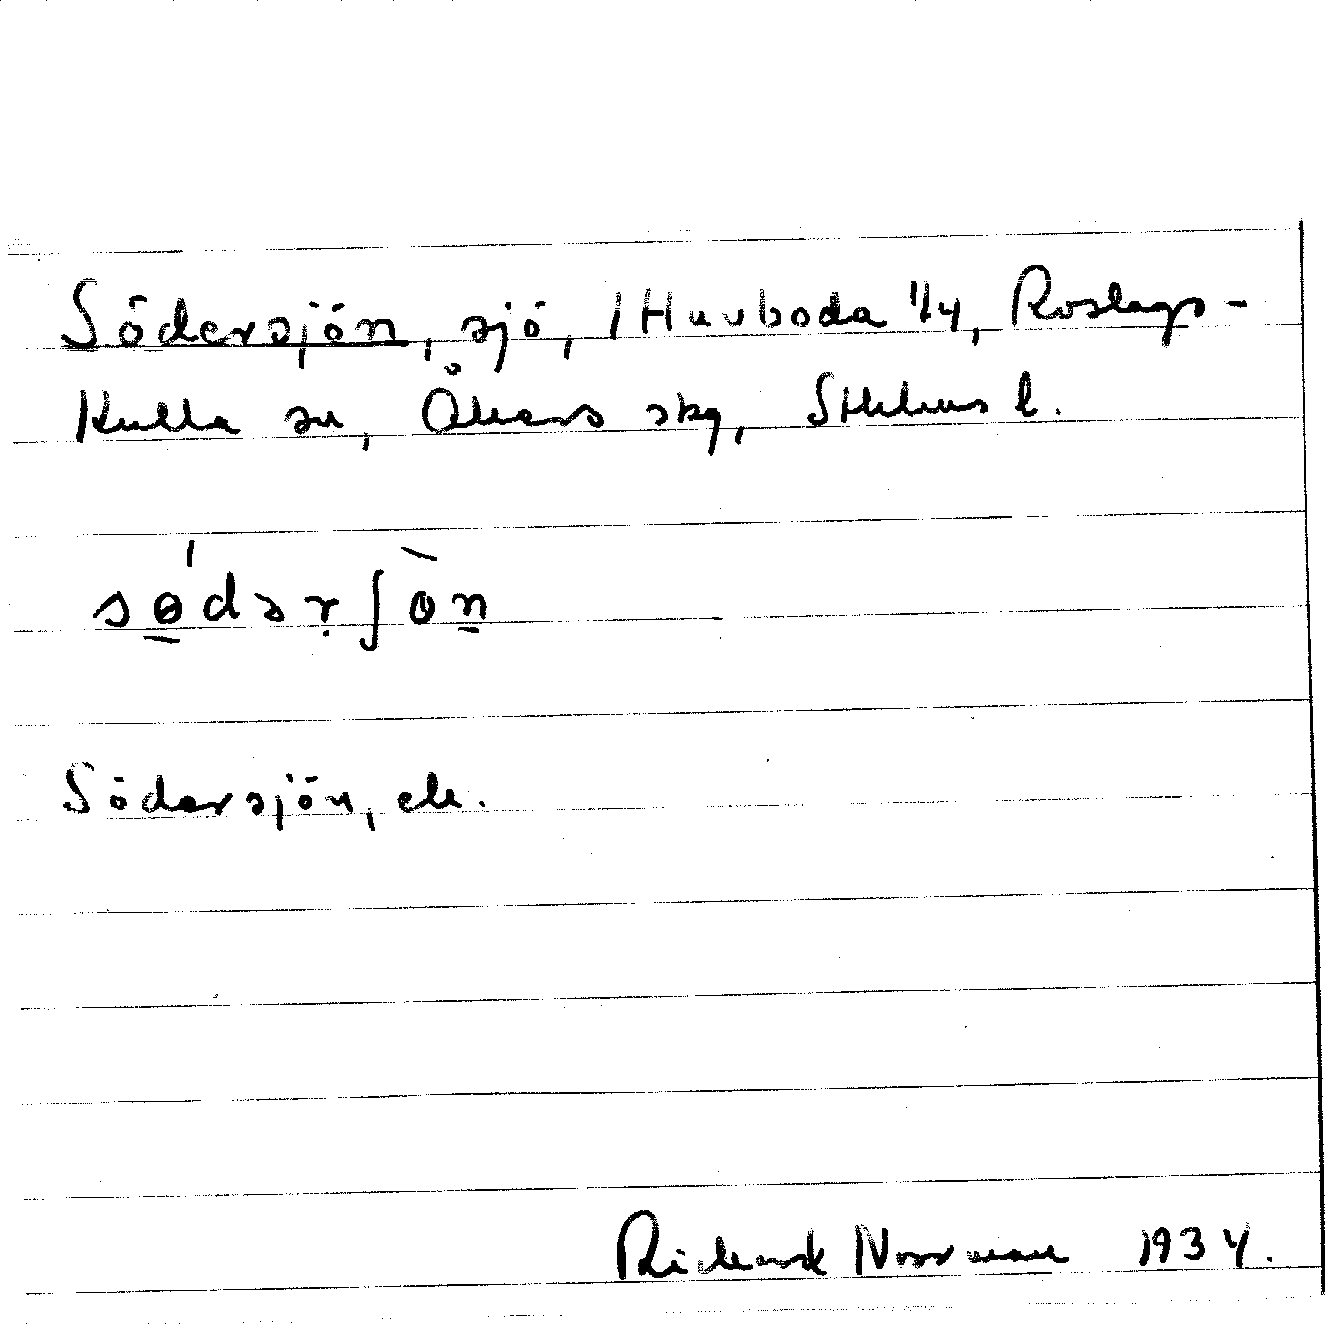 Södersjön, sjö, / Havboda 1/4, Roslags-
Kulla sn, Åkers skg, Sthlms l.
sө́dərʃòn
Södersjön, ek.
Rickard Norrman 1934.